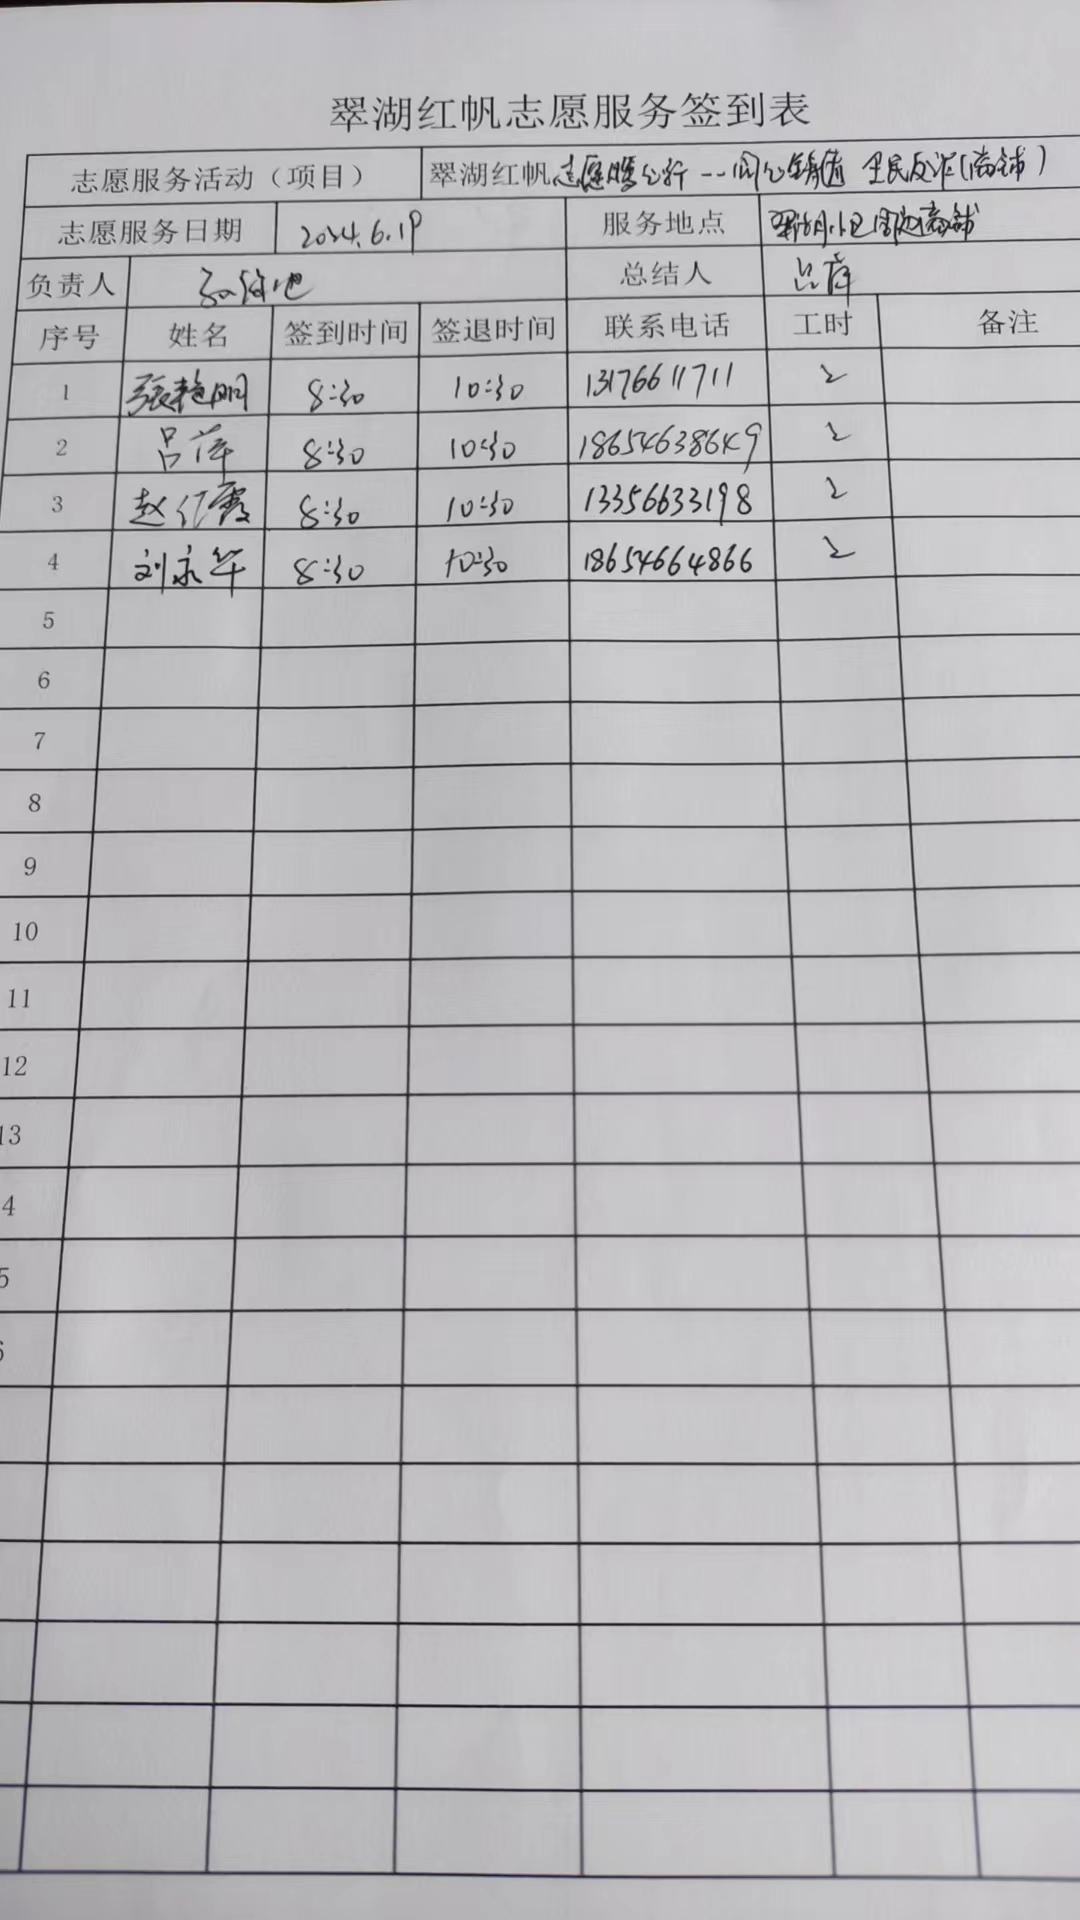 翠湖红帆志愿服务签到表
志愿服务活动（项目） 翠湖红帆志愿 全民反诈(商铺)
志愿服务日期 2024.6.19 服务地点 翠湖小区周边商铺
负责人 总结人 吕萍
序号 姓名 签到时间 签退时间 联系电话 工时 备注
1 张艳明 8:30 10:30 13176611711 2
2 吕萍 8:30 10:30 18654638649 2
3 赵仁霞 8:30 10:30 13356633198 2
4 刘永华 8:30 10:30 18654664866 2
5
6
7
8
9
10
11
12
13
4
5